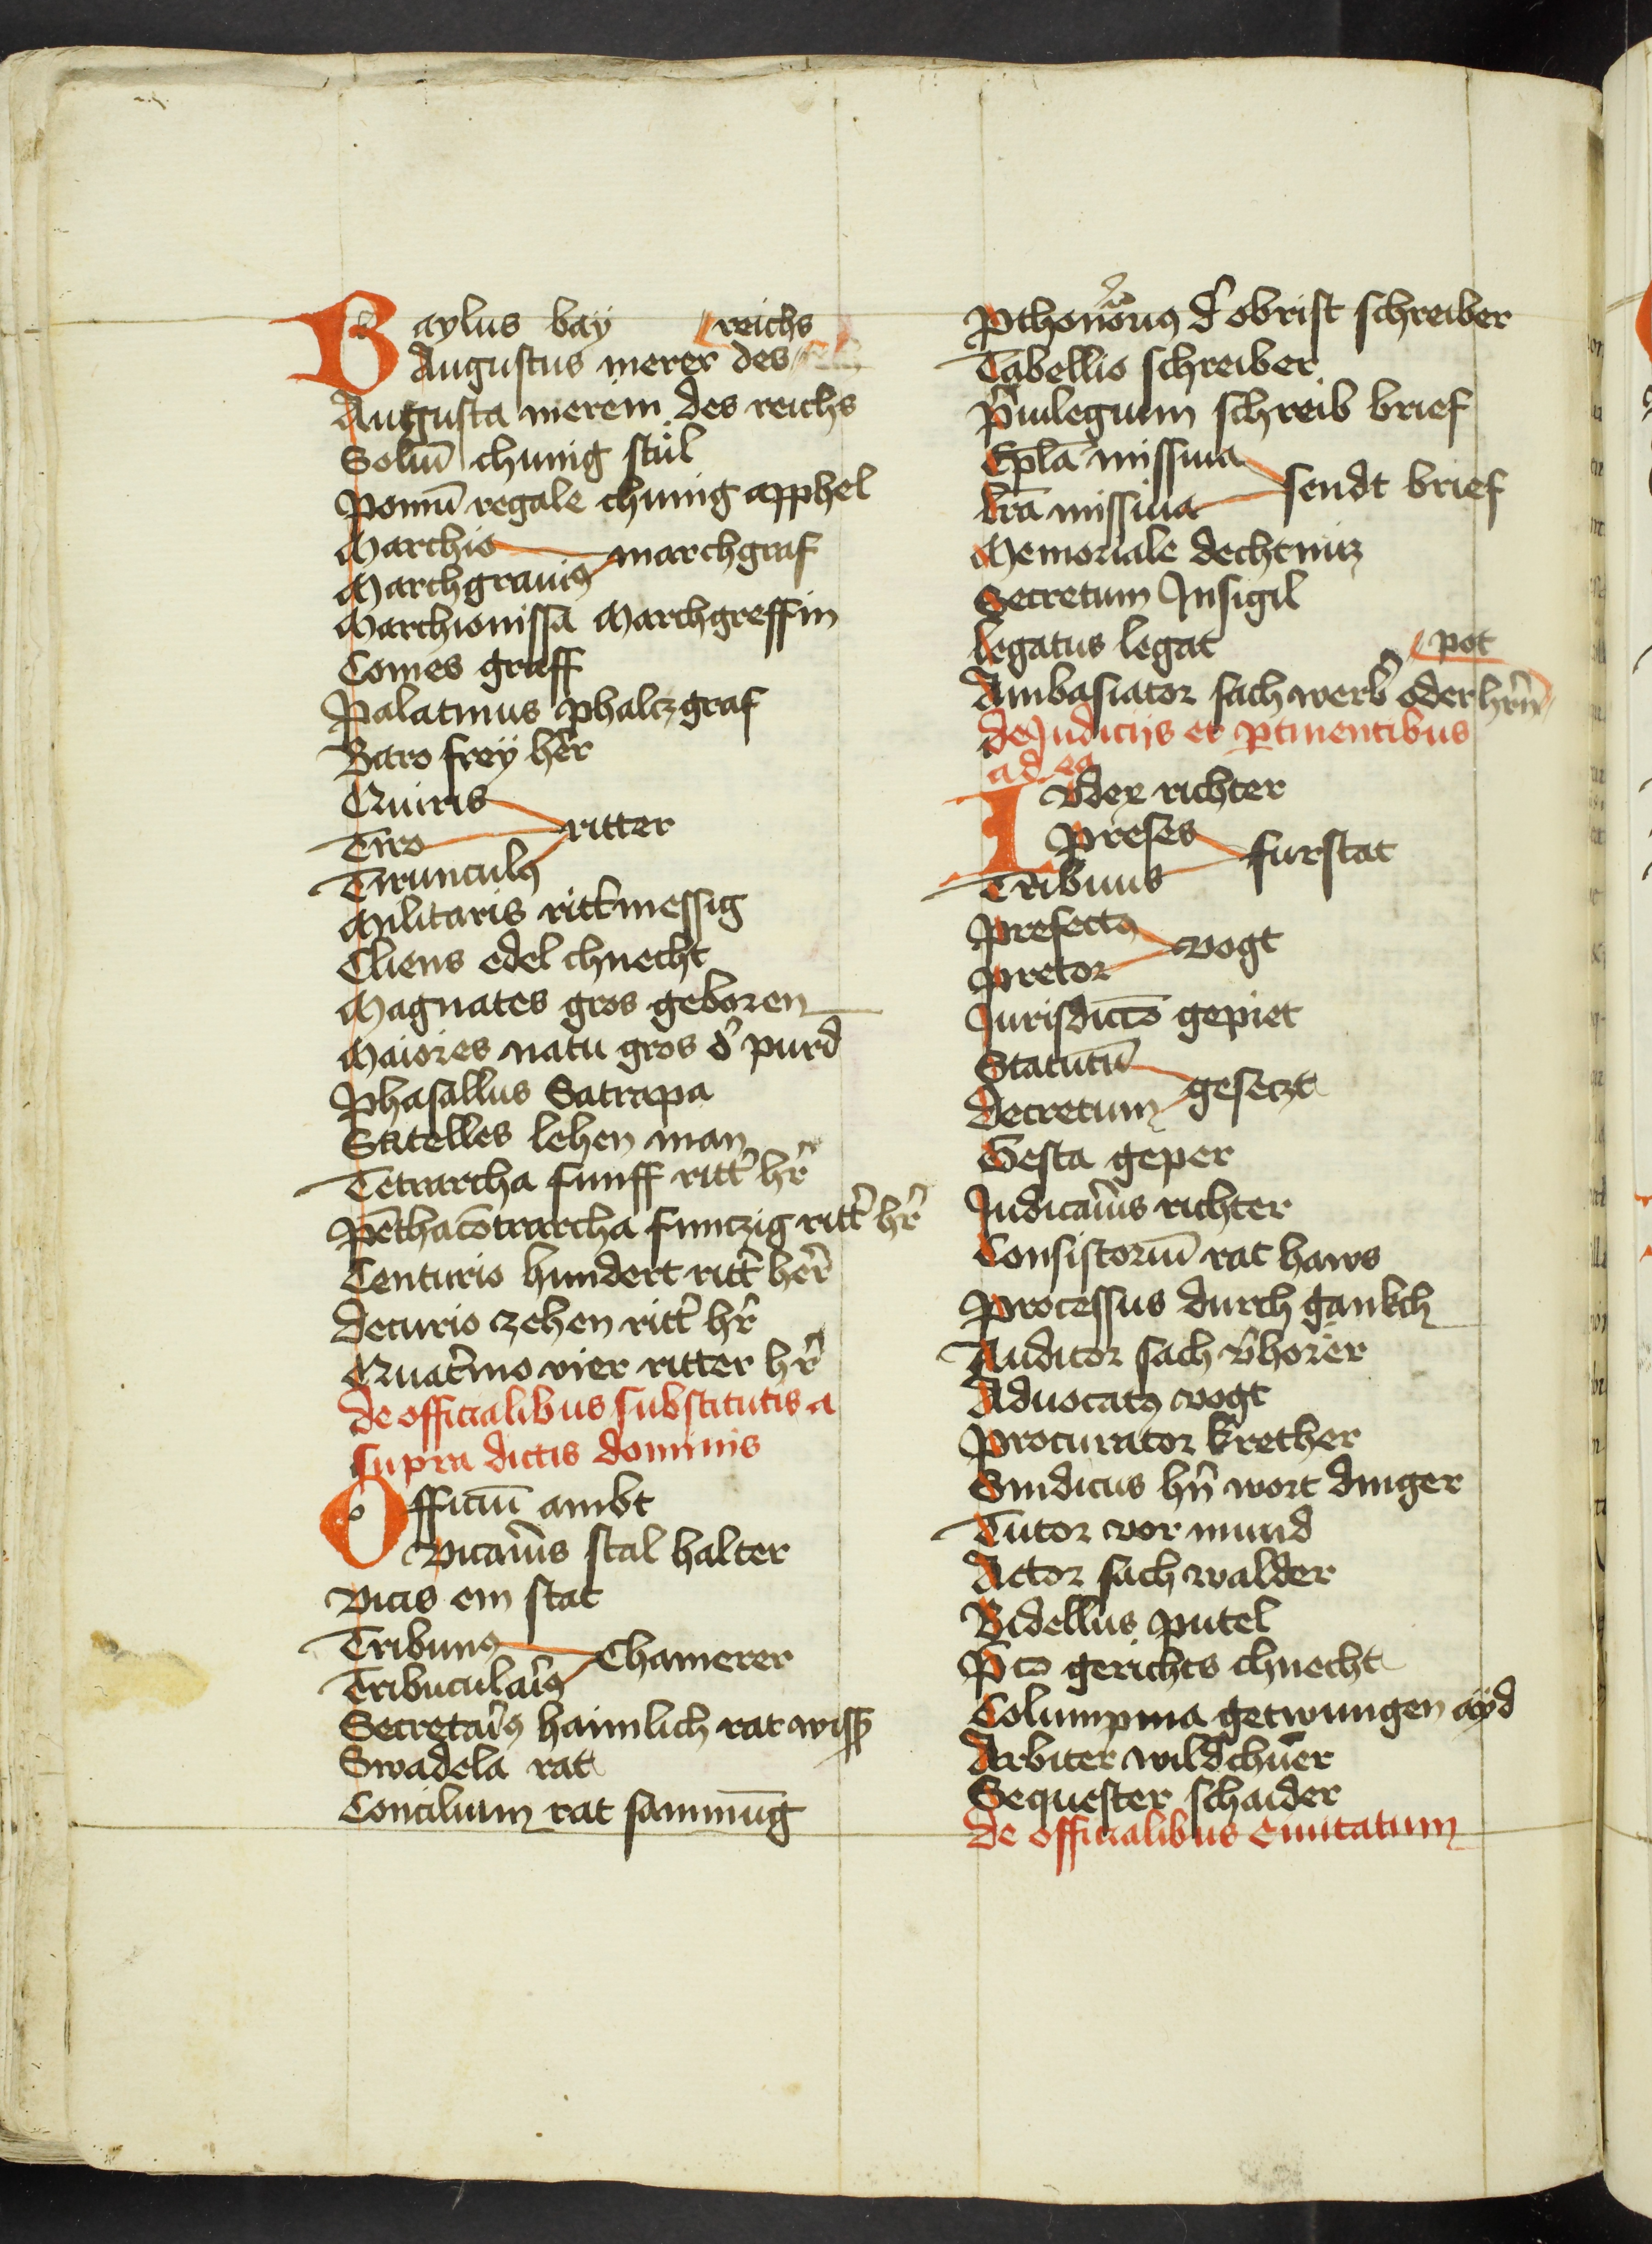 Baylus bay reichs
Augustus merer des
Augusta merein des reichs
Soliū chunig stůl
Pomū regale chunig apphel
Marchio marchgraf
Marchgrauiꝰ
Marchionissa Marchgreffin
Comes graff
Palatinus phalczgraf
Baro freÿ her̃
Quiris
Tiro ritter
Tirunculꝰ
Militaris ritt̾messig
Cliens edel chnecht
Magnates gros geboren
Maiores natu gros d̾ purd
Phasallus Satrapa
Statelles lehen man
Tetrarcha funff ritt̾ hr̃
Pēthacōtrarcha funczig ritt̾ hr̃
Centurio hundert ritt̾ her̃
Decurio zehen ritt̾ hr̃
Quat̾mo vier ritter hr̃
De officialibus substitutis a
supra dictis dominis
Officiū ambt
Vicari̾us stal halter
Vicis ein stat
Tribunꝰ Chamerer
Tribucularꝰ
Secretari̾ꝰ haimlich rat wiss̾
Swadela rat
Concilium rat sammūg
Pthonōriꝰ d̾ obrist schreiber
Tabellio schreiber
p̾uilegium schreib brief
Ep̄la missiua sendt brief
l̄ra missiua
Memoriale dechtnuz
Secretum Jnsigil
Legatus legat pot
Ambasiator sach werb̾ oder hr̄n
De Judicijs et ꝑtinentibus
ad ea
Iudex richter
Preses furstat
Tribunus
Prefectꝰ vogt
Pretor
Jurisdicc̄o gepiet
Statutū geseczt
Decretum
Gesta geper
Judicari̾us richter
Consistoriū rat haws
Processus durch gankch
Auditor sach v̾horer
Aduocatꝰ vogt
Procurator krether
Sindicus hn̄ wort dinger
Tutor vor mund
Actor sach walder
Bidellus putel
P̄co gerichts chnecht
Columpma getwungen aÿd
Arbiter wildchuer
Sequester schaider
De officialibus Ciuitatum